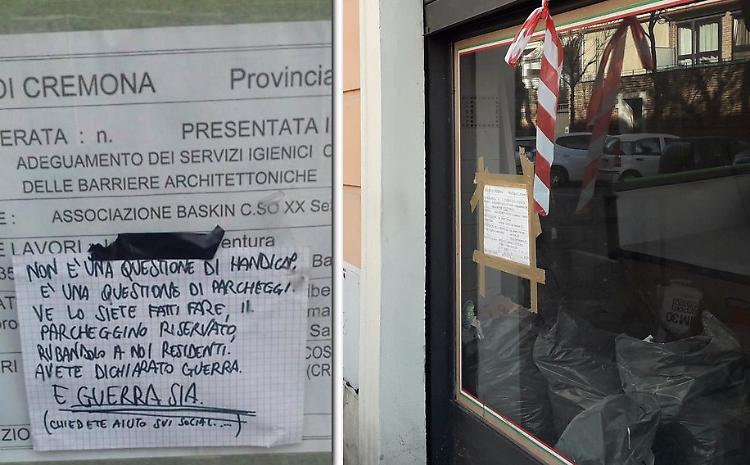 DI CREMONA Provincia
ERATA : n. PRESENTATA I
ADEGUAMENTO DEI SERVIZI IGIENICI
DELLE BARRIERE ARCHITETTONICHE
E : ASSOCIAZIONE BASKIN C.SO XX Se
E LAVORI entura
Ba
NON È UNA QUESTIONE DI HANDICAP,
E' UNA QUESTIONE DI PARCHEGGI.
VE LO SIETE FATTI FARE, IL
PARCHEGGINO RISERVATO,
RUBANDOLO A NOI RESIDENTI.
AVETE DICHIARATO GUERRA.
E GUERRA SIA.
(CHIEDETE AIUTO SUI SOCIAL....)